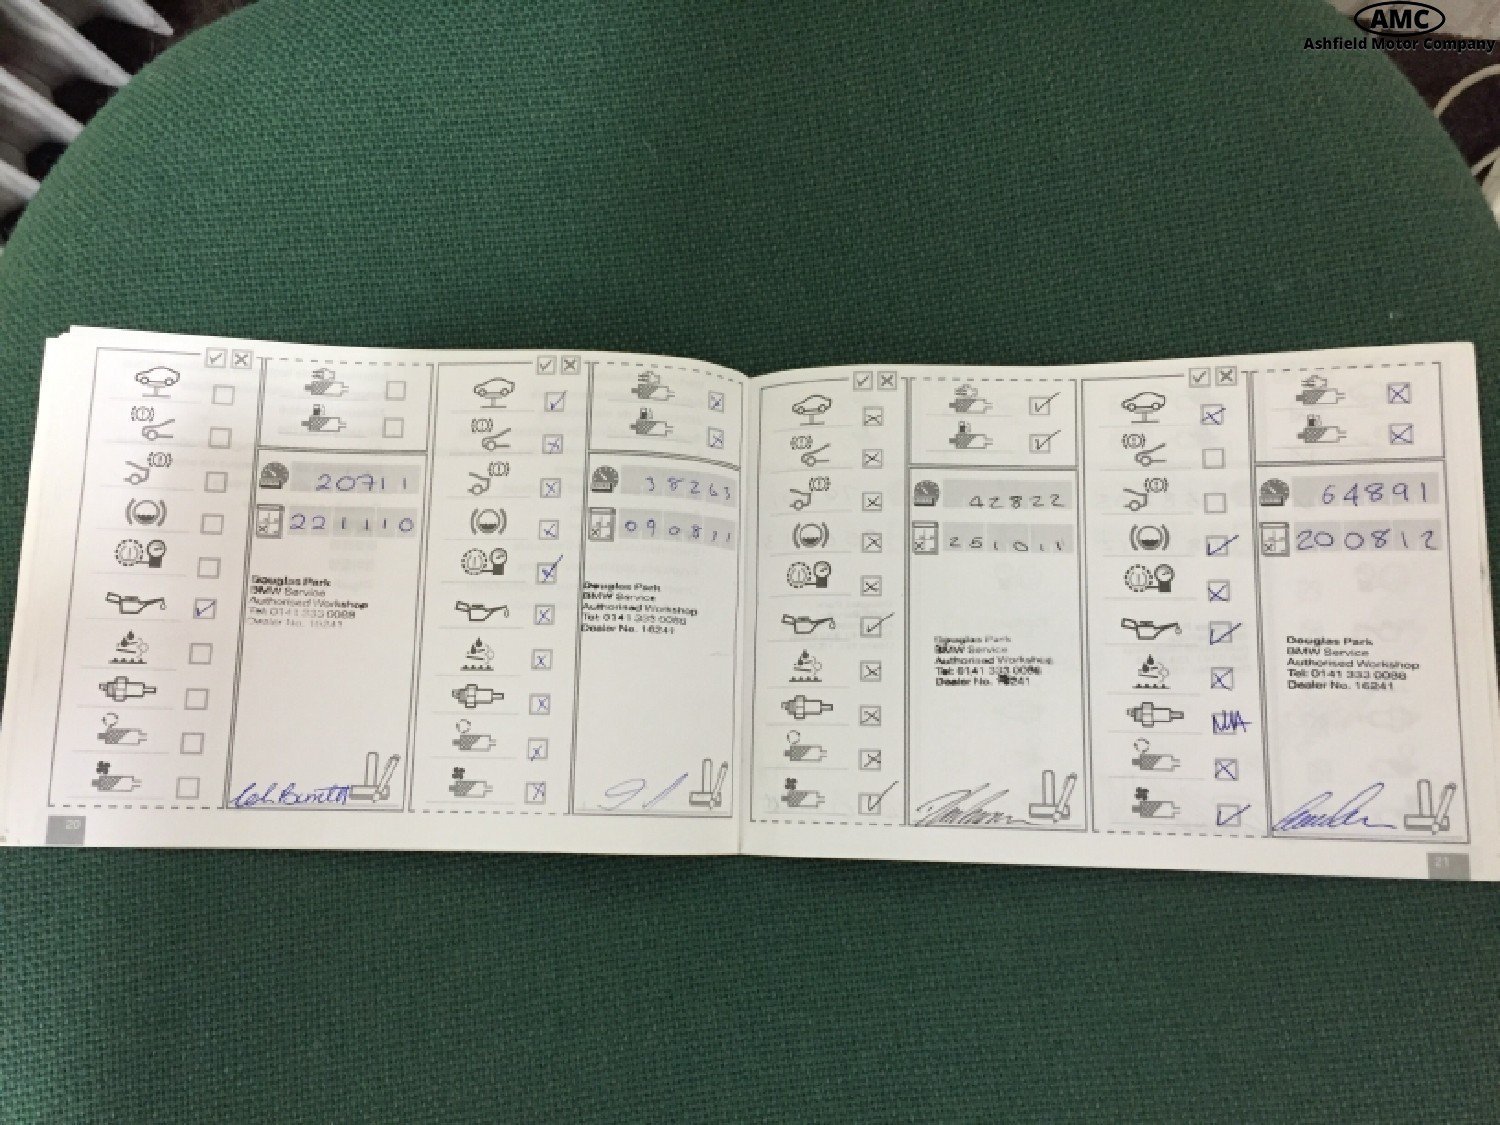 AMC
Ashfield Motor Company
20711
221110
Douglas Park
BMW Service
Authorised Workshop
Tel: 0141 333 0088
Dealer No. 16241
20
38263
090811
Douglas Park
BMW Service
Authorised Workshop
Tel: 0141 333 0088
Dealer No. 16241
42822
251011
Douglas Park
BMW Service
Authorised Workshop
Tel: 0141 333 0088
Dealer No. 16241
N/A
64891
200812
Douglas Park
BMW Service
Authorised Workshop
Tel: 0141 333 0088
Dealer No. 16241
21